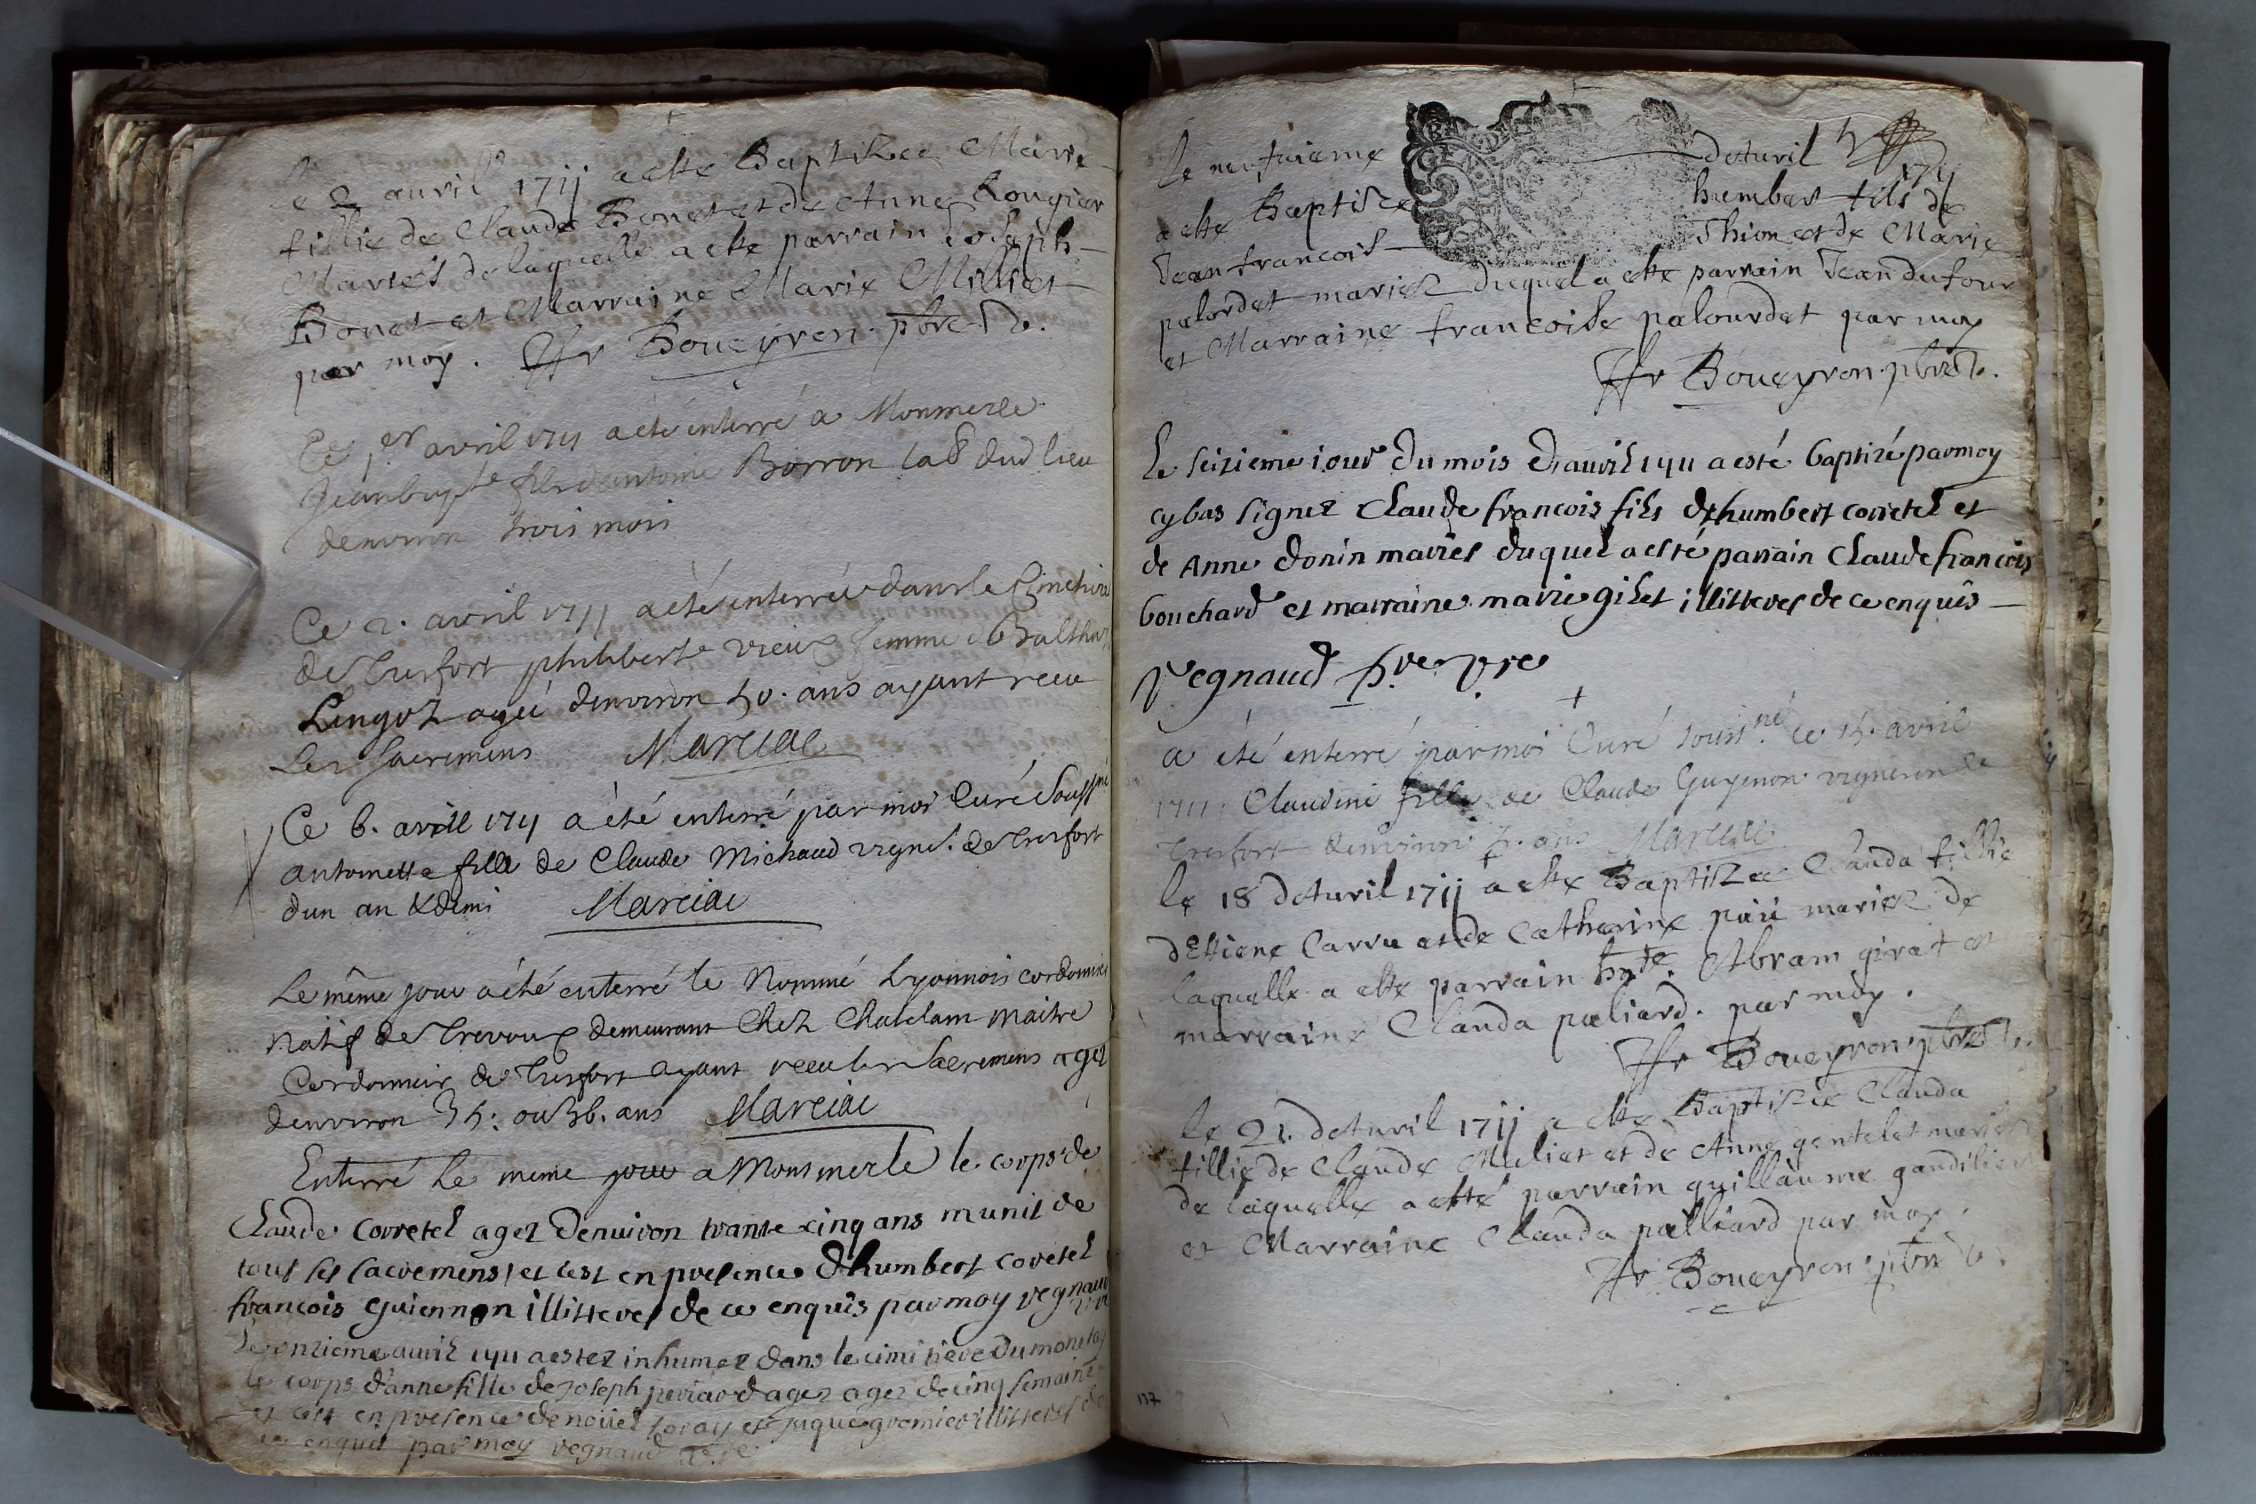 le 2 auril 1711 a este Baptizee Marie
fillie de Claude Bonet et de Anne Rougier
Mariés de laquelle a este parrain Joseph
Bonet et Marraine Marie Milliet
par moy. Boueyron pbre
Ce 1er avril 1711 a été enterré a Monmerle
Jean bapte fils d'antoine Borron lab dud lieu
denviron trois mois
Ce 2. avril 1711 a été enterrée dans le Cimetiere
de Tresfort philiberte vieux femme a Balthaz
Lingoz agée denviron 50. ans ayant receu
Les Sacremens Marciac
Ce 6. avril 1711 a été enterré par moi Curé Soussné
antoinette fille de Claude Michaud vigne. de Tresfort
dun an & demi Marciac
Le même jour a été enterré le Nommé Lyonnois cordonnier
Natif de Trevoux demeurant Chez Chatelain maitre
Cordonnier de Tresfort ayant receu les Sacremens agez
denviron 35. ou 36. ans Marciac
Enterré Le meme jour a Monsmerle le corps de
Claude Corretel agez denuiron trante cinq ans munit de
tous ses sacremens, et cest en presence dhumbert corretel
francois guiennon illitteres de ce enquis par moy regnaud
Le onzieme auril 1711 a estez inhumez dans le cimitiere du
le corps d'anne fille de Joseph periard agez agez de cinq semaine
et cest en presence de noüel et Jaque illitteres de
ce enquis par moy regnaud
Le neufuieme d'Auril 1711
a este Baptize humbert fils de
Jean francois Thion et de Marie
palordet mariez duquel a este parrain Jean dufour
et Marraine francoise palourdet par moy
Boueyron pbre
Le seizieme iour du mois d'auril 1711 a esté baptizé par moy
cy bas signez Claude francois fils d'humbert corretel et
de Anne donin mariés duquel a esté parrain Claude francois
bouchard et marraine marie gilet illitteres de ce enquis
regnaud
a été enterré par moi Curé soussné ce 15. avril
1711. Claudine fille de Claude Guyenon vigneron de
Tresfort denviron 5. ans Marciac
le 18 d'Auril 1711 a este Baptizee Clauda fillie
d'Ettiene Carru et de Catherine paü mariez de
laquelle a este parrain Abram girat et
marraine Clauda paliard. par moy.
Boueyron pbre
le 21. d'Auril 1711 a este Baptizee Clauda
fillie de Claude Muliet et de Anne gentelet mariés
de laquelle a esté parrain guillaume gandilier
et Marraine Clauda palliard par moy.
Boueyron pbre
137